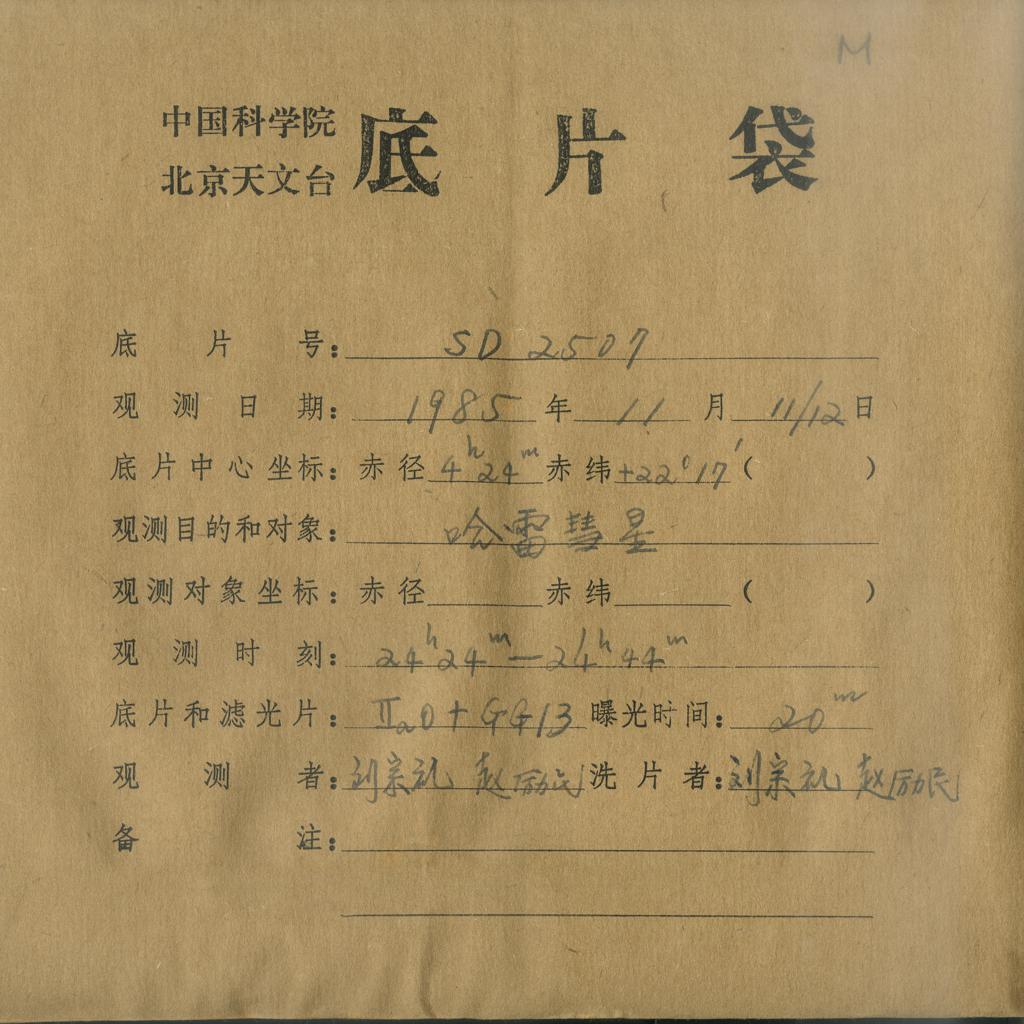 M
中国科学院
北京天文台 底片袋
底片号: SD 2507
观测日期: 1985 年 11 月 11/12 日
底片中心坐标: 赤径 4h24m 赤纬 +22°17′ ( )
观测目的和对象: 哈雷彗星
观测对象坐标: 赤径 赤纬 ( )
观测时刻: 24h24m—24h44m
底片和滤光片: IIaO+GG13 曝光时间: 20m
观测者: 刘宗礼 赵励民 洗片者: 刘宗礼 赵励民
备注: